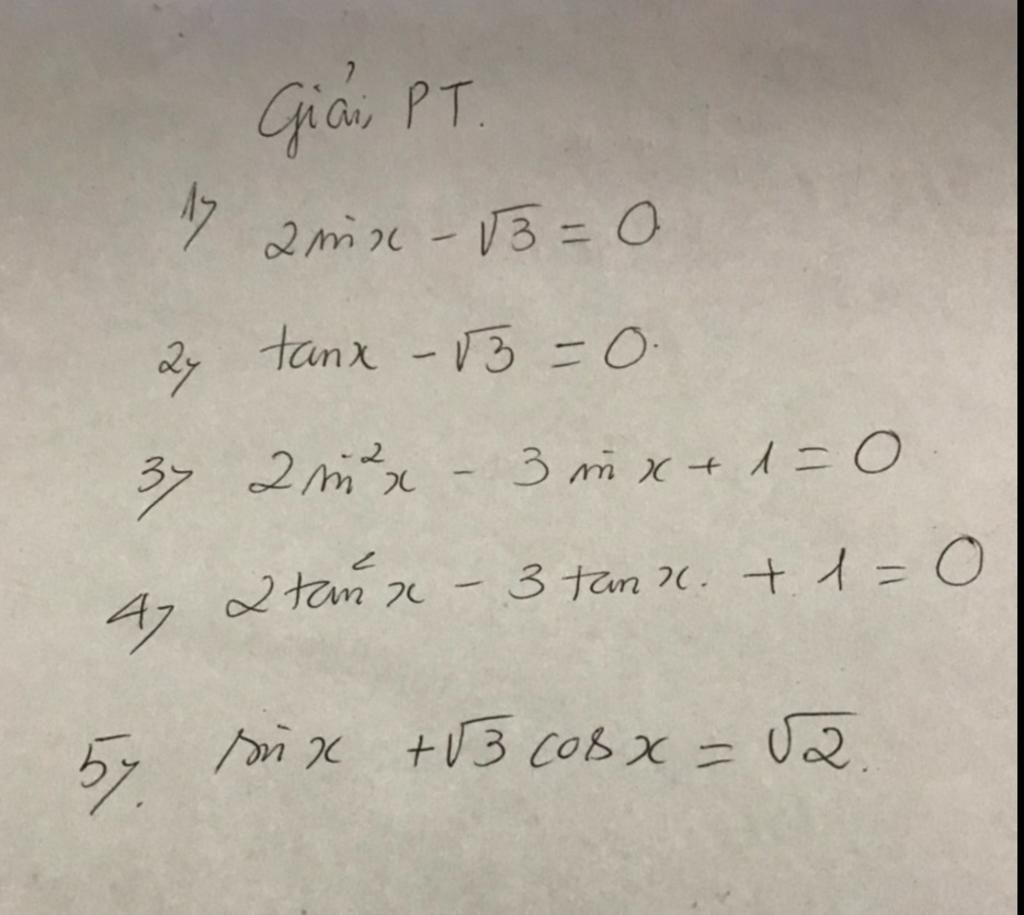 Giải PT.
1) 2 sin x - √3 = 0
2) tan x - √3 = 0.
3) 2 sin²x - 3 sin x + 1 = 0
4) 2 tan²x - 3 tan x. + 1 = 0
5). sin x + √3 cos x = √2.